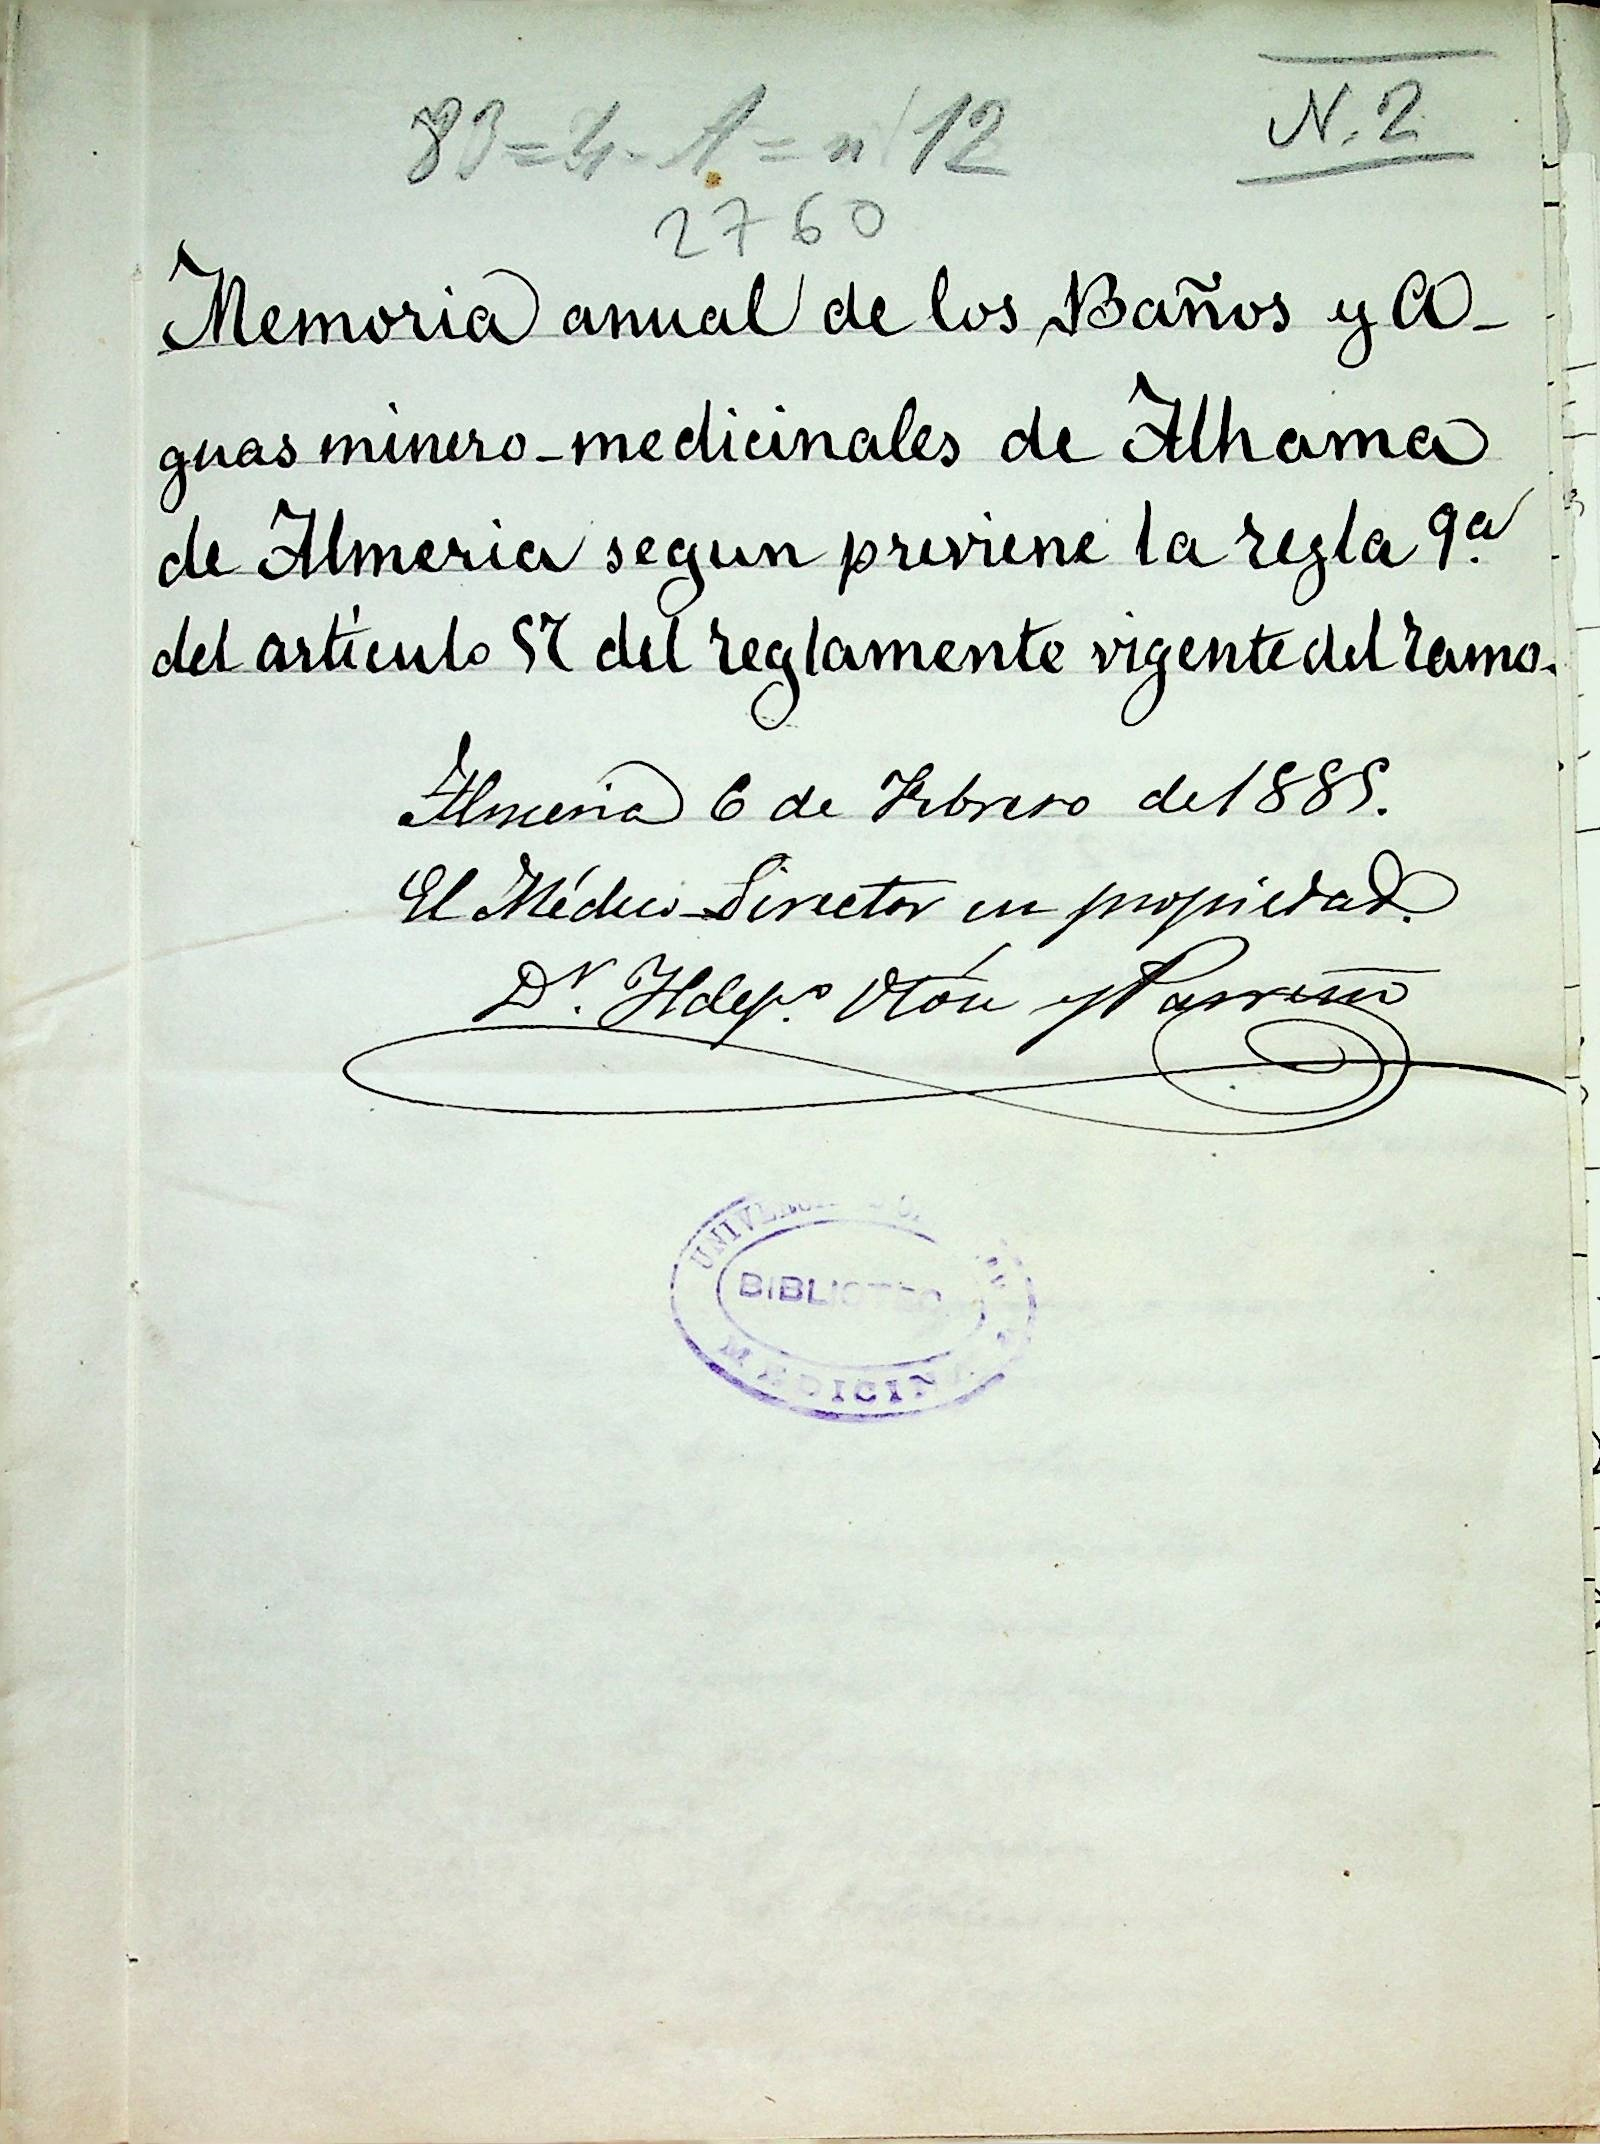 N. 2
83=4-A=n 12
2760
Memoria anual de los Baños y A-
guas minero-medicinales de Alhama
de Almeria segun previene la regla 9.a
del artículo 57 del reglamente vigente del ramo.
Almeria 6 de Febrero de 1885.
El Médico-Director en propiedad.
Dr. Ildefo. Otón y Parreño
BIBLIOTEC
MEDICIN